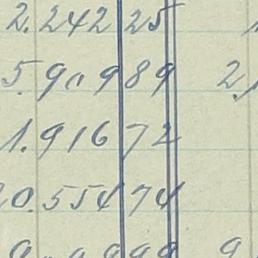 2.242 25
5.909 89 2,
1.916 72
0.554 74